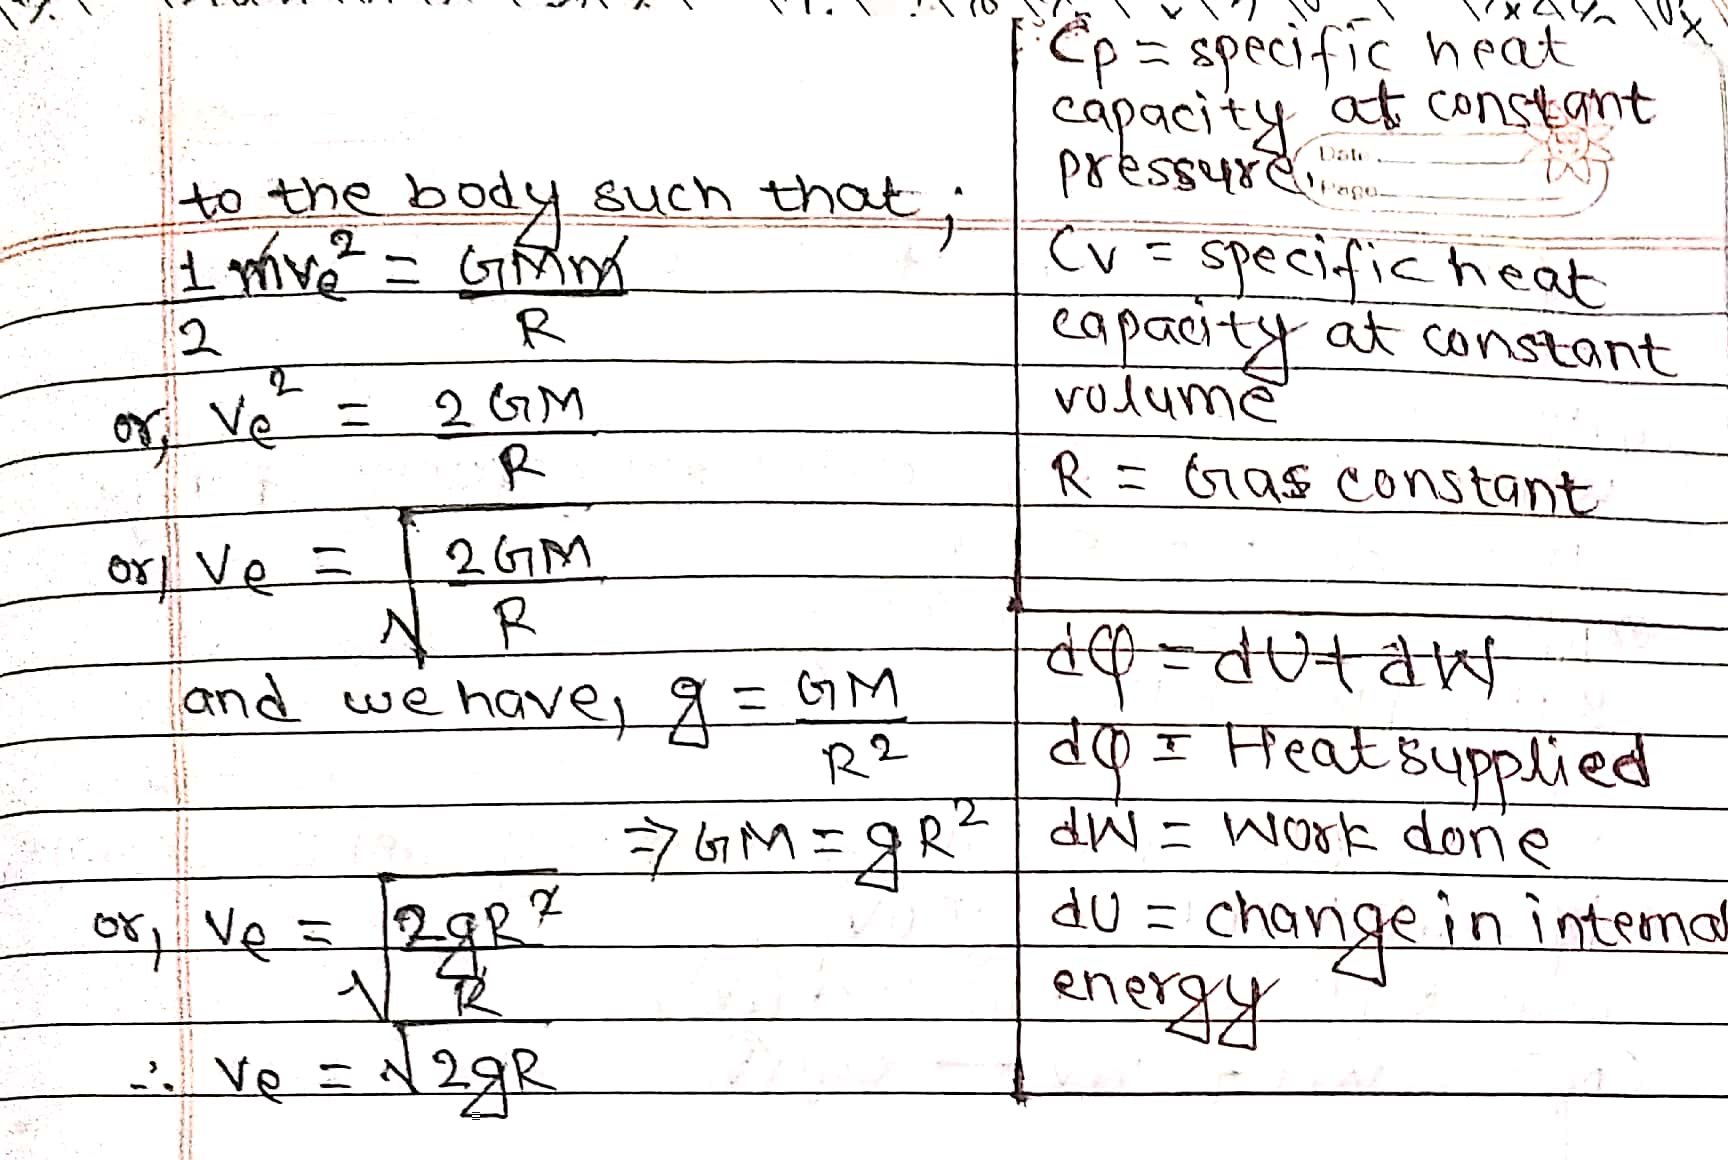 to the body such that;
1/2 mve² = GMm/R
or, ve² = 2GM/R
or, ve = √(2GM/R)
and we have, g = GM/R²
⇒ GM = gR²
or, ve = √(2gR²/R)
∴ ve = √2gR
Cp = specific heat
capacity at constant
pressure.
Date
Page
Cv = specific heat
capacity at constant
volume
R = Gas constant
dQ = dU + dW
dQ = Heat supplied
dW = Work done
dU = change in internal
energy